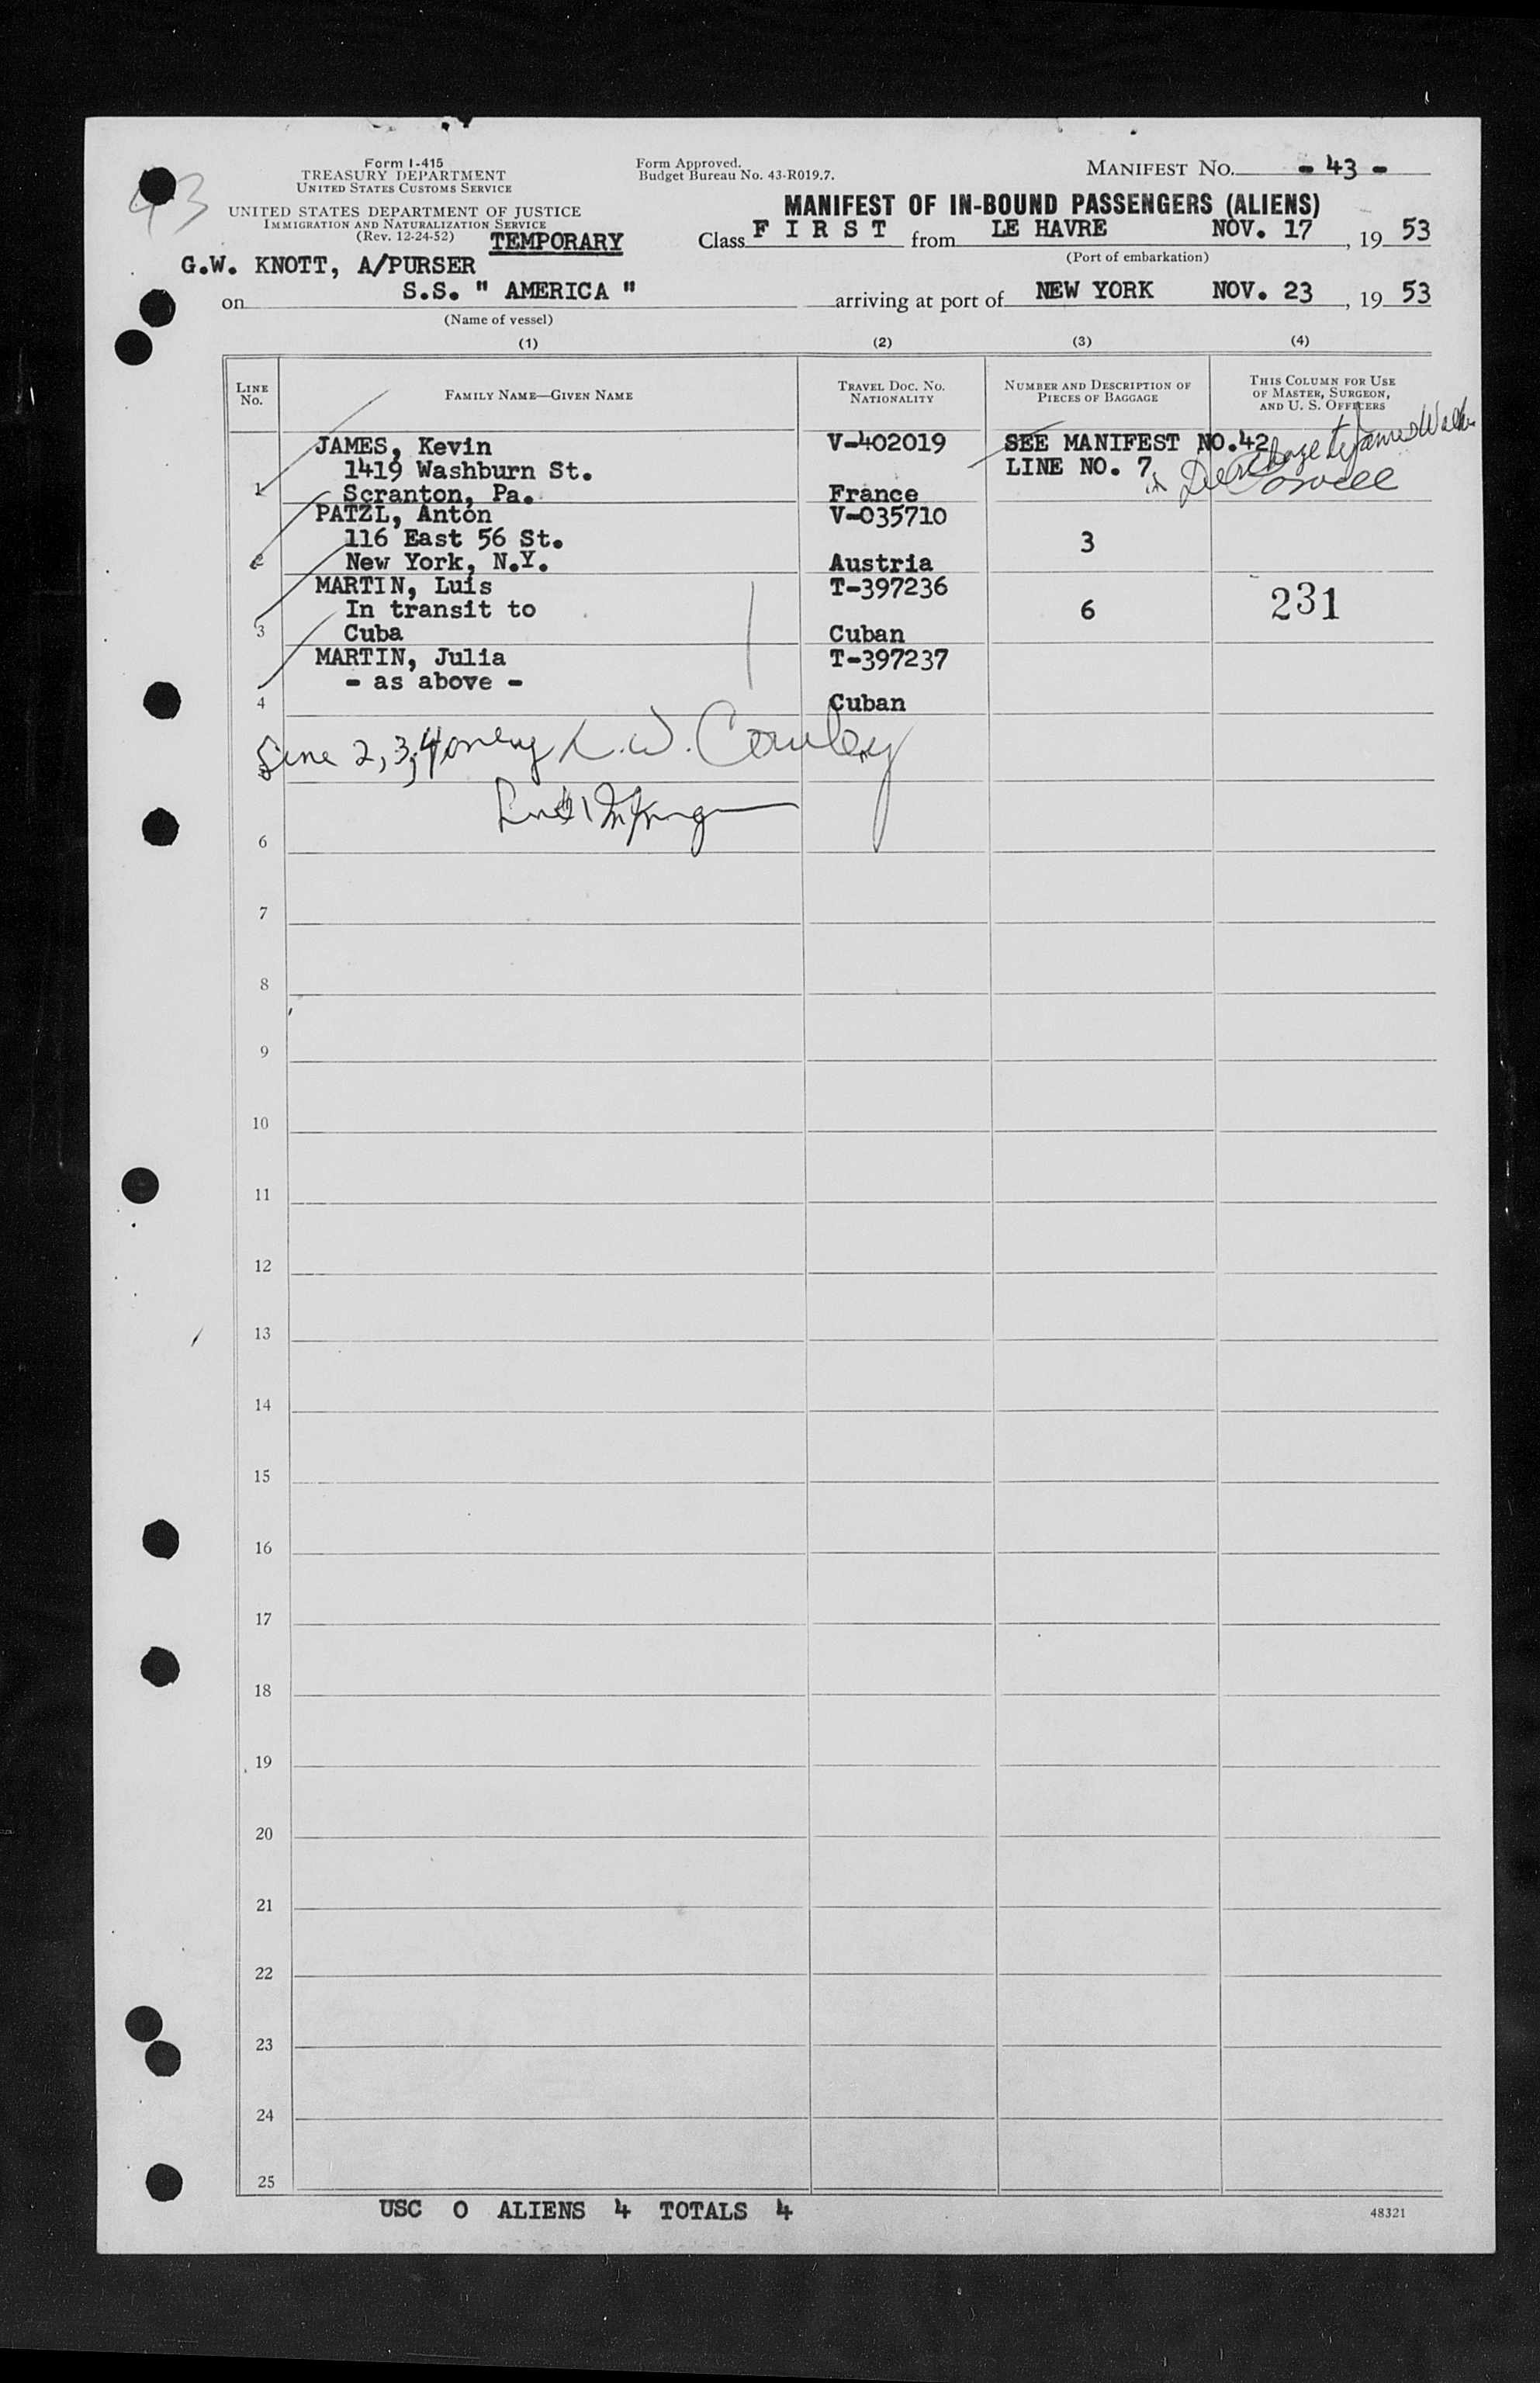 43
Form I-415
TREASURY DEPARTMENT
UNITED STATES CUSTOMS SERVICE
UNITED STATES DEPARTMENT OF JUSTICE
IMMIGRATION AND NATURALIZATION SERVICE
(Rev. 12-24-52)
TEMPORARY
Form Approved.
Budget Bureau No. 43-R019.7.
MANIFEST NO. - 43 -
MANIFEST OF IN-BOUND PASSENGERS (ALIENS)
Class F I R S T from LE HAVRE NOV. 17, 19 53
(Port of embarkation)
G.W. KNOTT, A/PURSER
on S.S. " AMERICA " arriving at port of NEW YORK NOV. 23, 19 53
(Name of vessel)
(1) (2) (3) (4)
LINE No.
FAMILY NAME—GIVEN NAME
TRAVEL DOC. NO. NATIONALITY
NUMBER AND DESCRIPTION OF PIECES OF BAGGAGE
THIS COLUMN FOR USE OF MASTER, SURGEON, AND U. S. OFFICERS
JAMES, Kevin V-402019 SEE MANIFEST NO.42
1419 Washburn St. LINE NO. 7
1 Scranton, Pa. France
PATZL, Anton V-035710
116 East 56 St. 3
2 New York, N.Y. Austria
MARTIN, Luis T-397236
In transit to 6 231
3 Cuba Cuban
MARTIN, Julia T-397237
- as above -
4 Cuban
Line 2, 3, 4 only L.W. Cowley
5
6
7
8
9
10
11
12
13
14
15
16
17
18
19
20
21
22
23
24
25
USC 0 ALIENS 4 TOTALS 4
48321